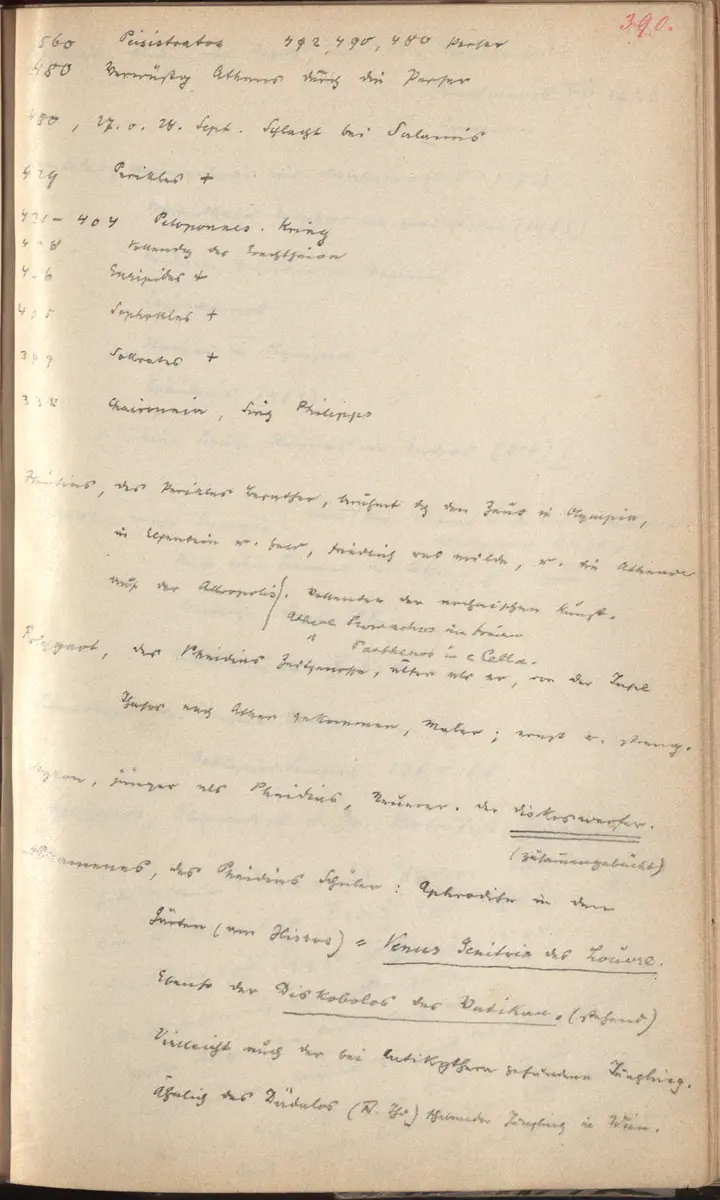 390.
560 Peisistratos 492, 490, 480 Perser
480 Verwüstg Athens durch die Perser
480, 27. o. 28. Sept. Schlacht bei Salamis
429 Perikles +
431 – 404 Peloponnes. Krieg
408 Vollendg des Erechtheion
406 Euripides +
405 Sophokles +
399 Sokrates +
338 Chaironeia, Sieg Philipps
Pheidias, des Perikles Berather, berühmt dch den Zeus in Olympia,
in Elfenbein u. Gold, friedlich und milde, u. die Athena
auf der Akropolis). Vollender der archaischen Kunst.
Athene Promachos im Freien
Parthenos in e Cella.
Polygnot, des Pheidias Zeitgenosse, älter als er, von der Insel
Thasos nach Athen gekommen, Maler; ernst u. streng.
Myron, jünger als Pheidias, Neuerer. der Diskoswerfer.
(zusammengebückt)
Alkamenes, des Pheidias Schüler: Aphrodite in den
Gärten (am Ilissos) = Venus Genitrix des Louvre.
Ebenso der Diskobolos des Vatikan. (stehend)
Vielleicht auch der bei Antikythera gefundene Jüngling.
Ähnlich des Dädalos Jüngling in Wien.